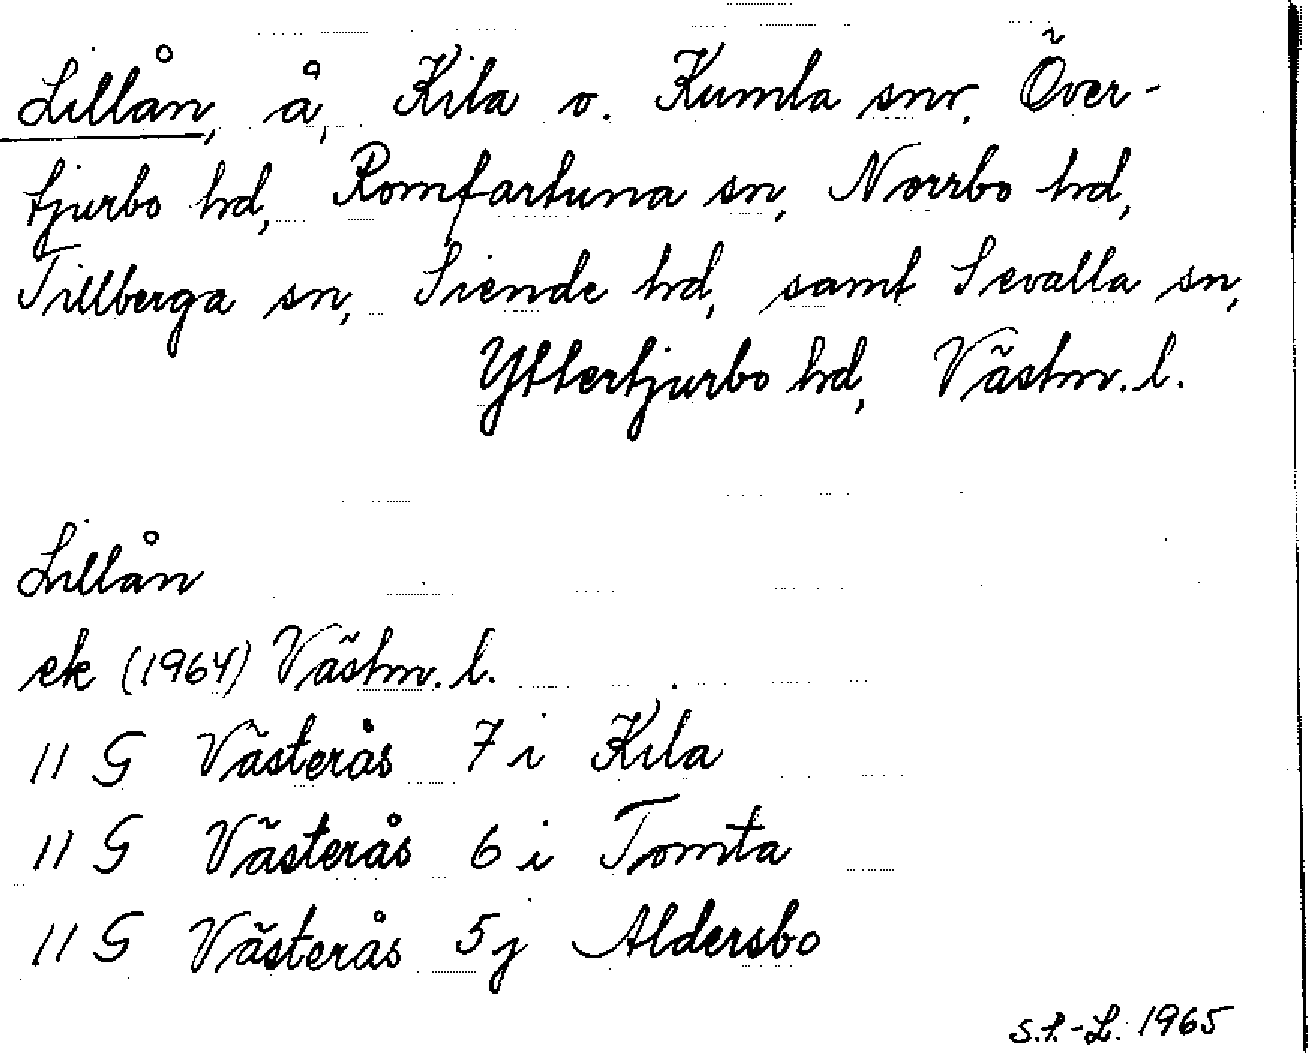 Lillån, å, Kila o. Kumla snr, Över-
tjurbo hd, Romfartuna sn, Norrbo hd,
Tillberga sn, Siende hd, samt Sevalla sn,
Yttertjurbo hd, Västm. l.
Lillån
ek (1964) Västm. l.
11 G Västerås 7 i Kila
11 G Västerås 6 i Tomta
11 G Västerås 5 j Aldersbo
S.S.-L. 1965